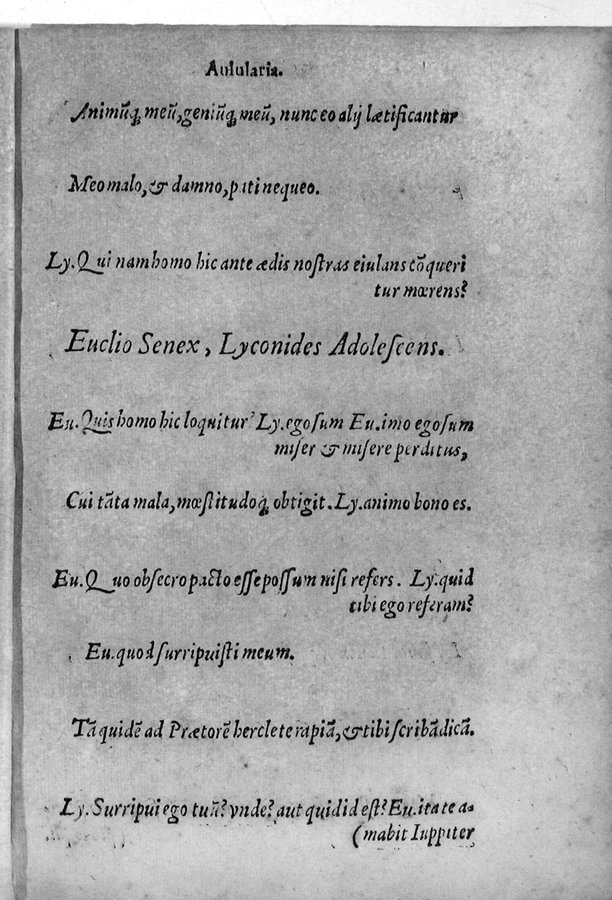 Aulularia.
Animũq; meũ, geniũq; meũ, nunc eo alij lætificantur
Meo malo, & damno, pati nequeo.
Ly. Qui nam homo hic ante ædis nostras eiulans cõqueri
tur mœrens?
Euclio Senex, Lyconides Adoleſcens.
Eu. Quis homo hic loquitur? Ly. ego ſum Eu. imo ego ſum
miſer & miſere perditus,
Cui tãta mala, mœſtitudoq; obtigit. Ly. animo bono es.
Eu. Quo obſecro pacto eſſe poſſum niſi refers. Ly. quid
tibi ego referam?
Eu. quod ſurripuiſti meum.
Tã quidẽ ad Prætorẽ hercle te rapiã, & tibi ſcribã dicã.
Ly. Surripui ego tuũ? vnde? aut quid id eſt? Eu. ita te a-
(mabit Iuppiter